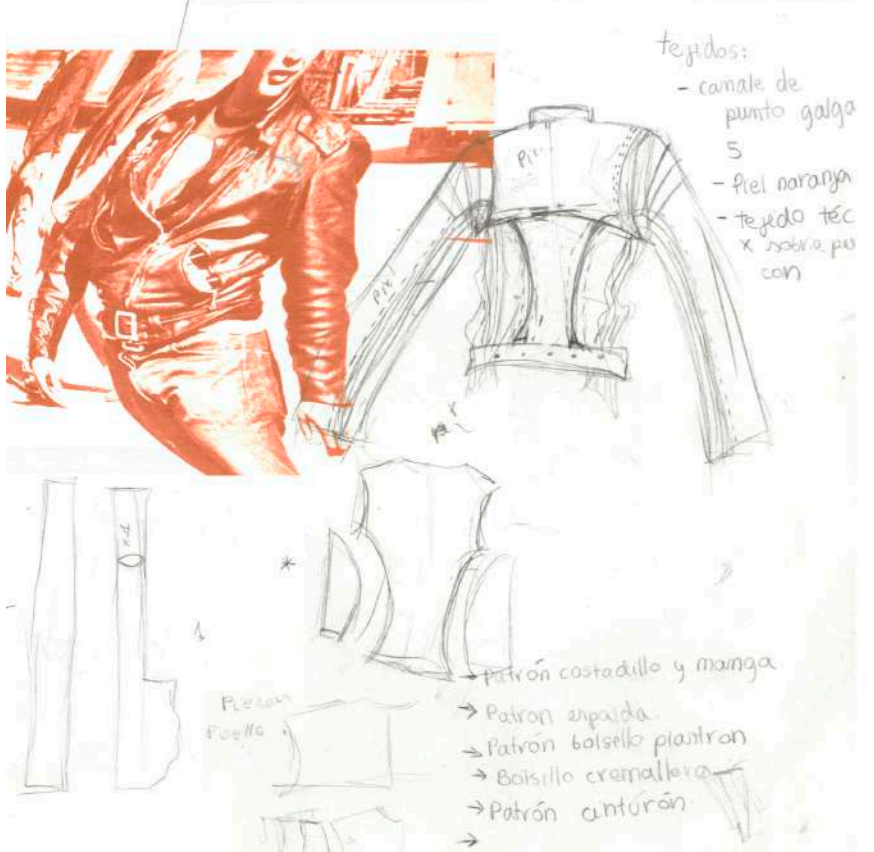 tejidos:
- canale de
punto galga
5
- Piel naranja
- tejido téc
x sobre
con
Piel
x4
*
1
Piezas
Cuello
→ Patrón costadillo y manga
→ Patron espalda.
→ Patrón bolsello plastron
→ Bolsillo cremallera
→ Patrón cinturón
→